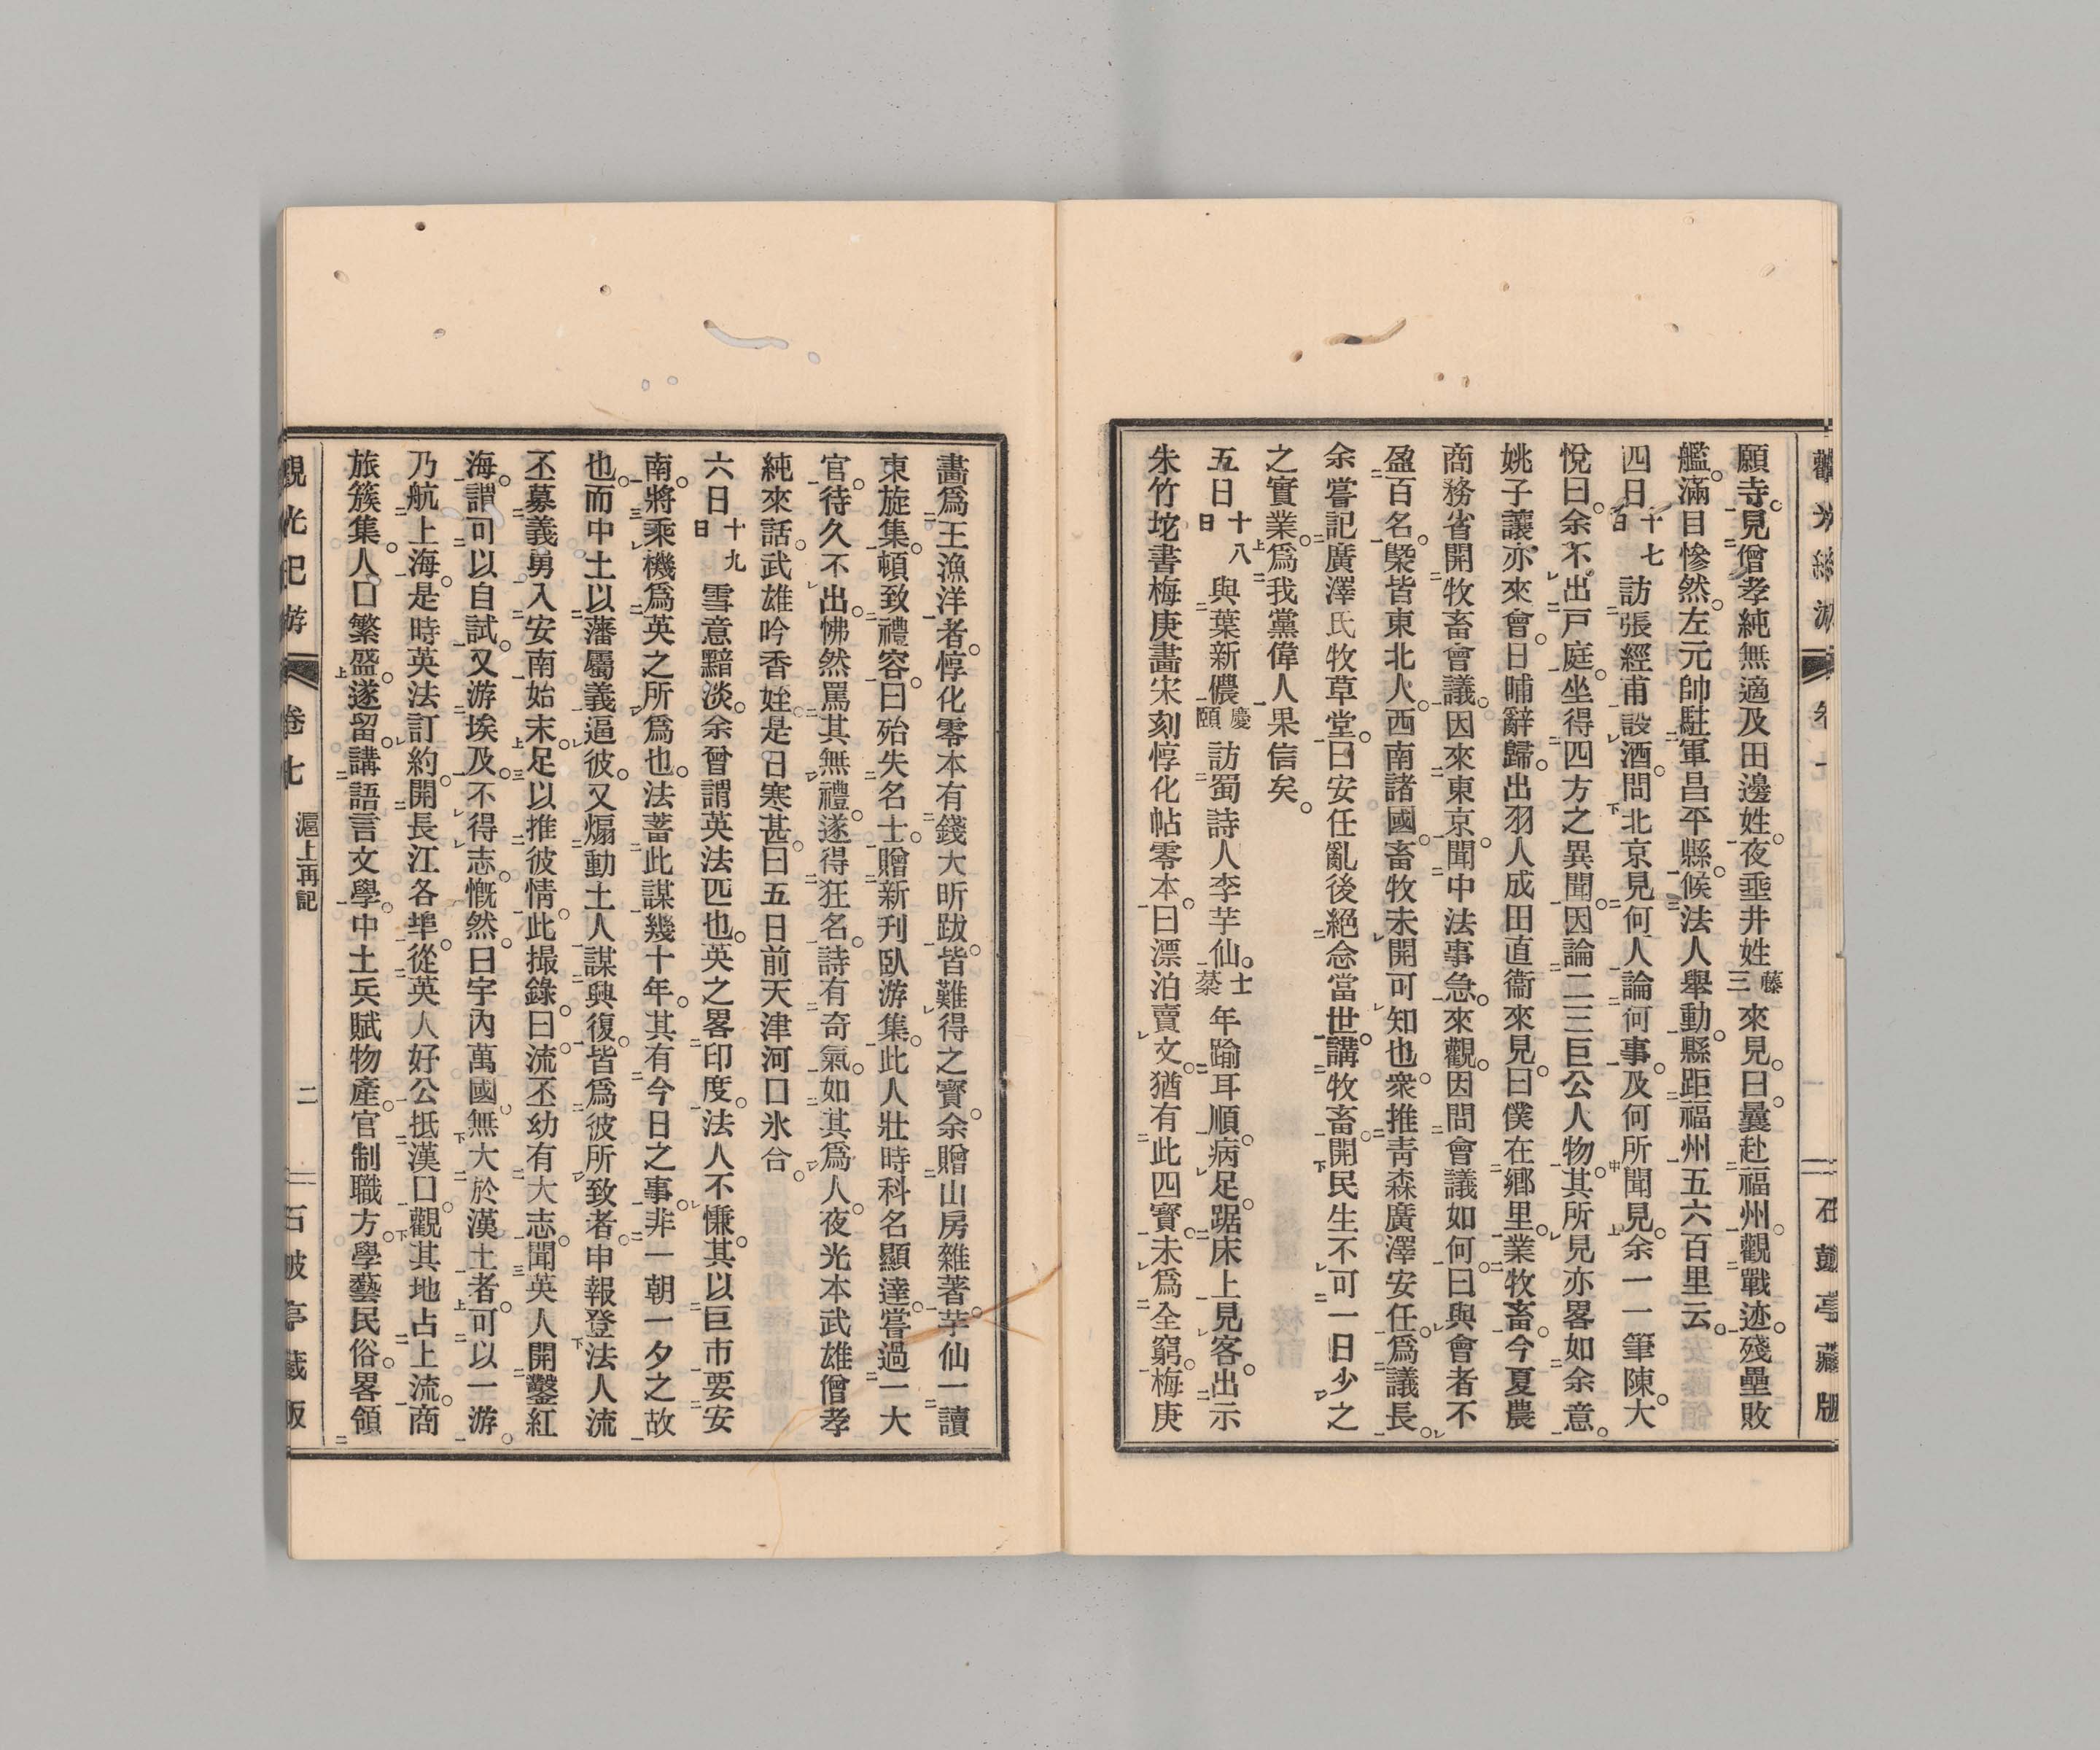 願寺。見僧孝純無適及田邊姓。夜垂井姓藤三來見。曰曩赴福州。觀戰迹。殘壘敗
艦。滿目慘然。左元帥駐軍昌平縣。候法人舉動。縣距福州五六百里云。
四日十七日訪張經甫設酒。問北京見何人論何事。及何所聞見。余一一筆陳。大
悅曰。余不出戶庭。坐得四方之異聞。因論二三巨公人物。其所見亦畧如余意。
姚子讓亦來會。日晡辭歸。出羽人成田直衞來見。曰僕在鄕里。業牧畜。今夏農
商務省開牧畜會議。因來東京。聞中法事急。來觀。因問會議如何。曰與會者不
盈百名。槩皆東北人。西南諸國。畜牧未開可知也。衆推靑森廣澤安任。爲議長。
余嘗記廣澤氏牧草堂。曰安任亂後絕念當世。講牧畜。開民生不可一日少之
之實業。爲我黨偉人果信矣。
五日十八日與葉新儂慶頤訪蜀詩人李芋仙。士棻年踰耳順。病足。踞床上見客。出示
朱竹垞書梅庚畫宋刻惇化帖零本。曰漂泊賣文。猶有此四寶。未爲全窮。梅庚
畫爲王漁洋者。惇化零本有錢大昕跋。皆難得之寶。余贈山房雜著。芋仙一讀
東旋集。頓致禮容。曰殆失名士。贈新刊臥游集。此人壯時科名顯達。嘗過一大
官。待久不出。怫然罵其無禮。遂得狂名。詩有奇氣。如其爲人。夜光本武雄僧孝
純來話。武雄吟香姪。是日寒甚。曰五日前天津河口氷合。
六日十九日雪意黯淡。余曾謂英法匹也。英之畧印度。法人不慊。其以巨市要安
南。將乘機爲英之所爲也。法蓄此謀幾十年。其有今日之事。非一朝一夕之故
也。而中土以藩屬義逼彼。又煽動土人謀興復。皆爲彼所致者。申報登法人流
丕募義勇入安南始末。足以推彼情。此撮錄。曰流丕幼有大志。聞英人開鑿紅
海。謂可以自試。又游埃及。不得志。慨然曰宇內萬國。無大於漢土者。可以一游。
乃航上海。是時英法訂約。開長江各埠。從英人好公抵漢口。觀其地占上流。商
旅簇集。人口繁盛。遂留。講語言文學。中土兵賦物產。官制職方。學藝民俗。畧領
觀光紀游
卷七
滬上再記
二
石皷亭藏版